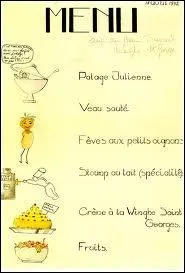 MENU
Potage Julienne.
Veau sauté.
Fèves aux petits oignons
Stoump au lait (spécialité)
Crème à la Winghe Saint
Georges.
Fruits.